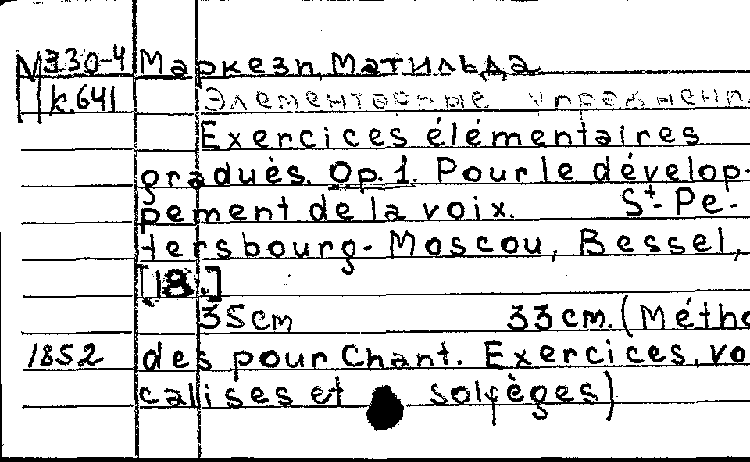 М 330-4 Маркези, Матильда
к.641 Элементарные упражнени
Exercices élémentaires
gradués. Op. 1. Pour le dévelop-
pement de la voix. St-Pe-
tersbourg-Moscou, Bessel,
[18..]
35cm 33cm. (Métho
1852 des pour Chant. Exercices, vo
calises et solfèges)